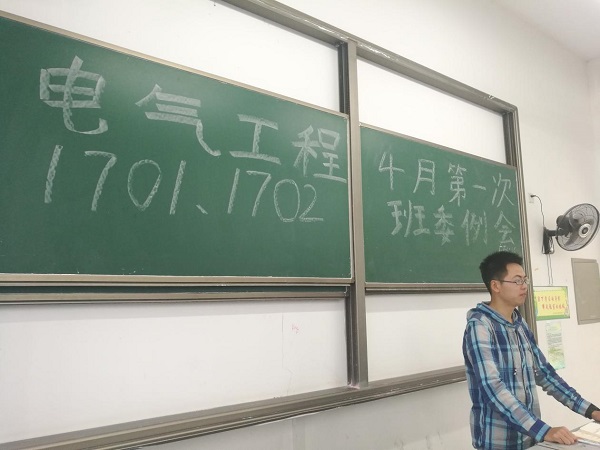 电气工程
1701、1702
4月第一次
班委例会